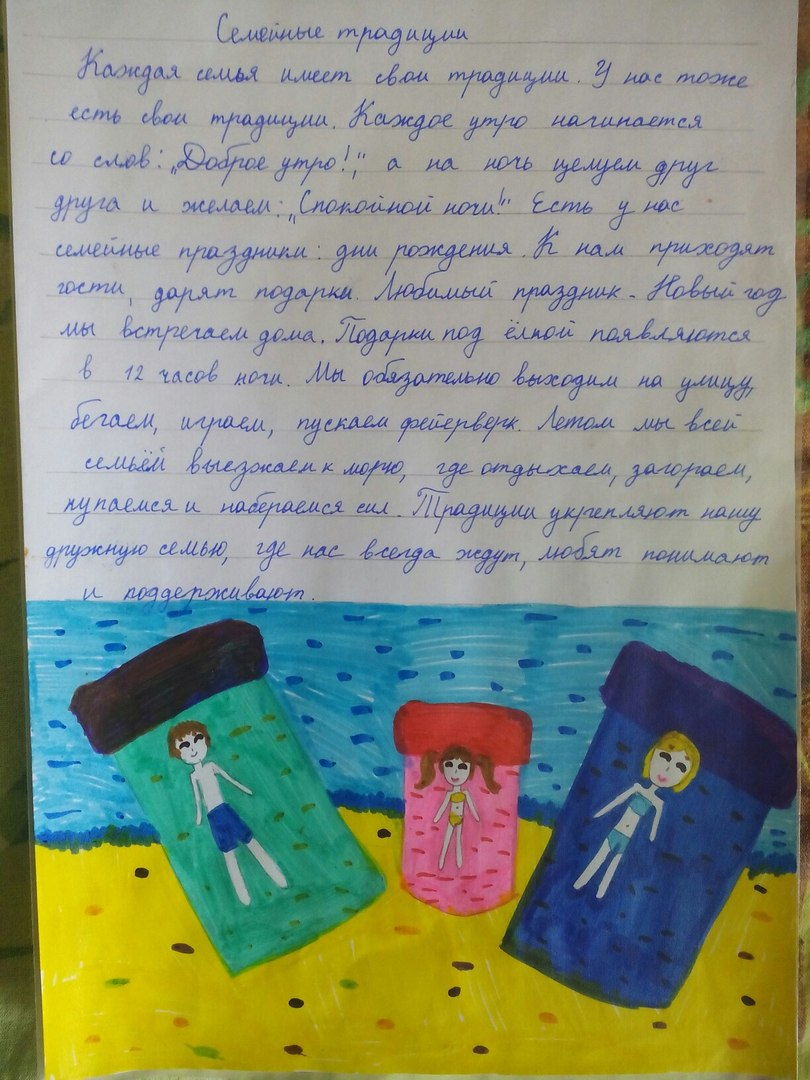 Семейные традиции
Каждая семья имеет свои традиции. У нас тоже
есть свои традиции. Каждое утро начинается
со слов: „Доброе утро!", а на ночь целуем друг
друга и желаем: „Спокойной ночи!" Есть у нас
семейные праздники: дни рождения. К нам приходят
гости, дарят подарки. Любимый праздник - Новый год
мы встречаем дома. Подарки под ёлкой появляются
в 12 часов ночи. Мы обязательно выходим на улицу,
бегаем, играем, пускаем фейерверк. Летом мы всей
семьёй выезжаем к морю, где отдыхаем, загораем,
купаемся и набераемся сил. Традиции укрепляют нашу
дружную семью, где нас всегда ждут, любят понимают
и поддерживают.